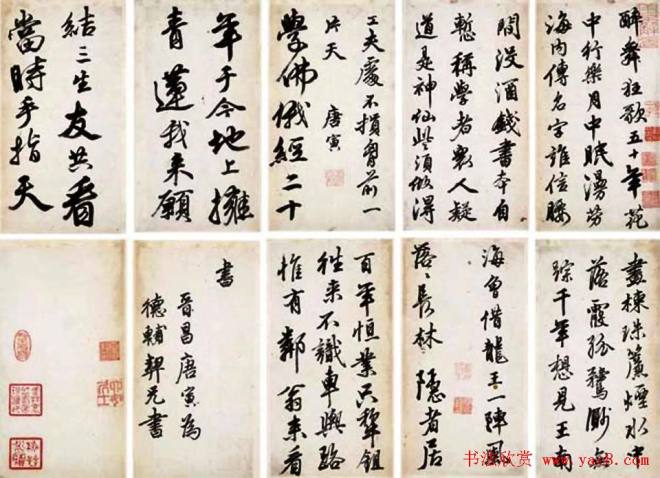 醉舞狂歌五十年花
中行樂月中眠漫勞
海內傳名字誰信腰
間沒酒錢書本自
慙稱學者眾人疑
道是神仙些須做得
工夫處不損胸前一
片天
唐寅
學佛俄經二十
年于今地上擁
青蓮我來願
結三生友共看
當時手指天
畫棟珠簾煙水中
落霞孤鶩渺無
踪千年想見王南
海曾借龍王一陣風
落〻長林隱者居
百年恒業只犂鉏
往來不識車輿路
惟有鄰翁來看
書
晉昌唐寅為
德輔契兄書
书法欣赏 www.yac8.com